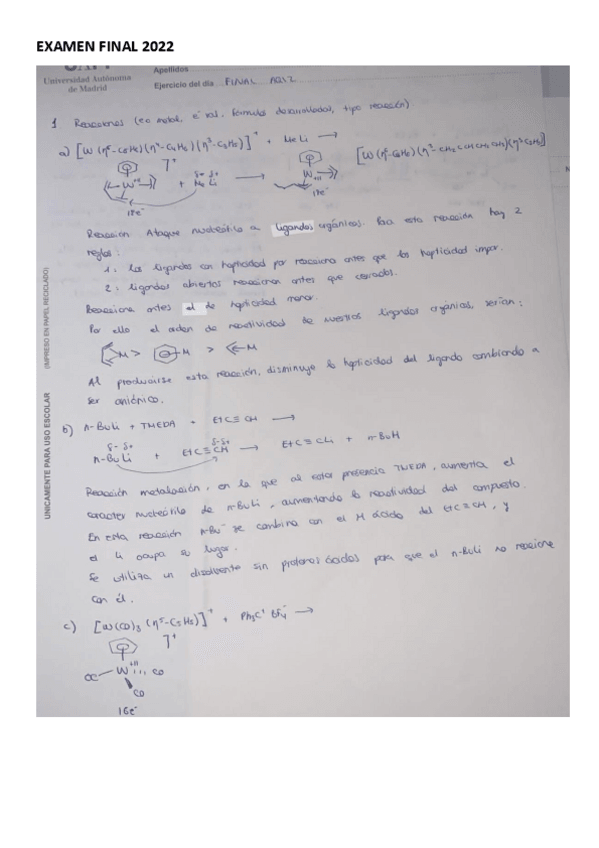 EXAMEN FINAL 2022
Universidad Autónoma
de Madrid
Apellidos
Ejercicio del día FINAL AQIZ
1 Reacciones (eo metal, é val, fórmulas desarrolladas, tipo reacción)
a) [W (η⁵-C₅H₅)(η⁴-C₄H₆)(η³-C₃H₅)]⁺ + MeLi →
W + Me Li → W [W(η⁵-C₅H₅)(η³-CH₂CHCHCH₂CH₃)(η³C₃H₅)]
18e⁻ 18e⁻
Reaccion Ataque nucleófilo a ligandos orgánicos. Para esta reacción hay 2
reglas:
1: Los ligandos con hapticidad par reacciona antes que los hapticidad impar.
2: ligandos abiertos reaccionan antes que cerrados.
Reacciona antes el de hapticidad menor.
Por ello el orden de reactividad de nuestros ligandos orgánicos, serían:
M > M > M
Al producirse esta reacción, disminuye la hapticidad del ligando cambiando a
ser aniónico.
b) n-BuLi + TMEDA + EtC≡CH →
δ- δ+ δ- δ+
n-BuLi + EtC≡CH → EtC≡CLi + n-BuH
Reacción metalación, en la que al estar presencia TMEDA, aumenta el
caracter nucleófilo de n-BuLi, aumentando la reactividad del compuesto.
En esta reacción n-Bu⁻ se combina con el H ácido del EtC≡CH, y
el Li ocupa su lugar.
Se utiliza un disolvente sin protones ácidos para que el n-BuLi no reaccione
con él.
c) [W(CO)₃ (η⁵-C₅H₅)]⁺ + Ph₃C⁺ BF₄⁻ →
OC W CO
CO
16e⁻
UNICAMENTE PARA USO ESCOLAR (IMPRESO EN PAPEL RECICLADO)